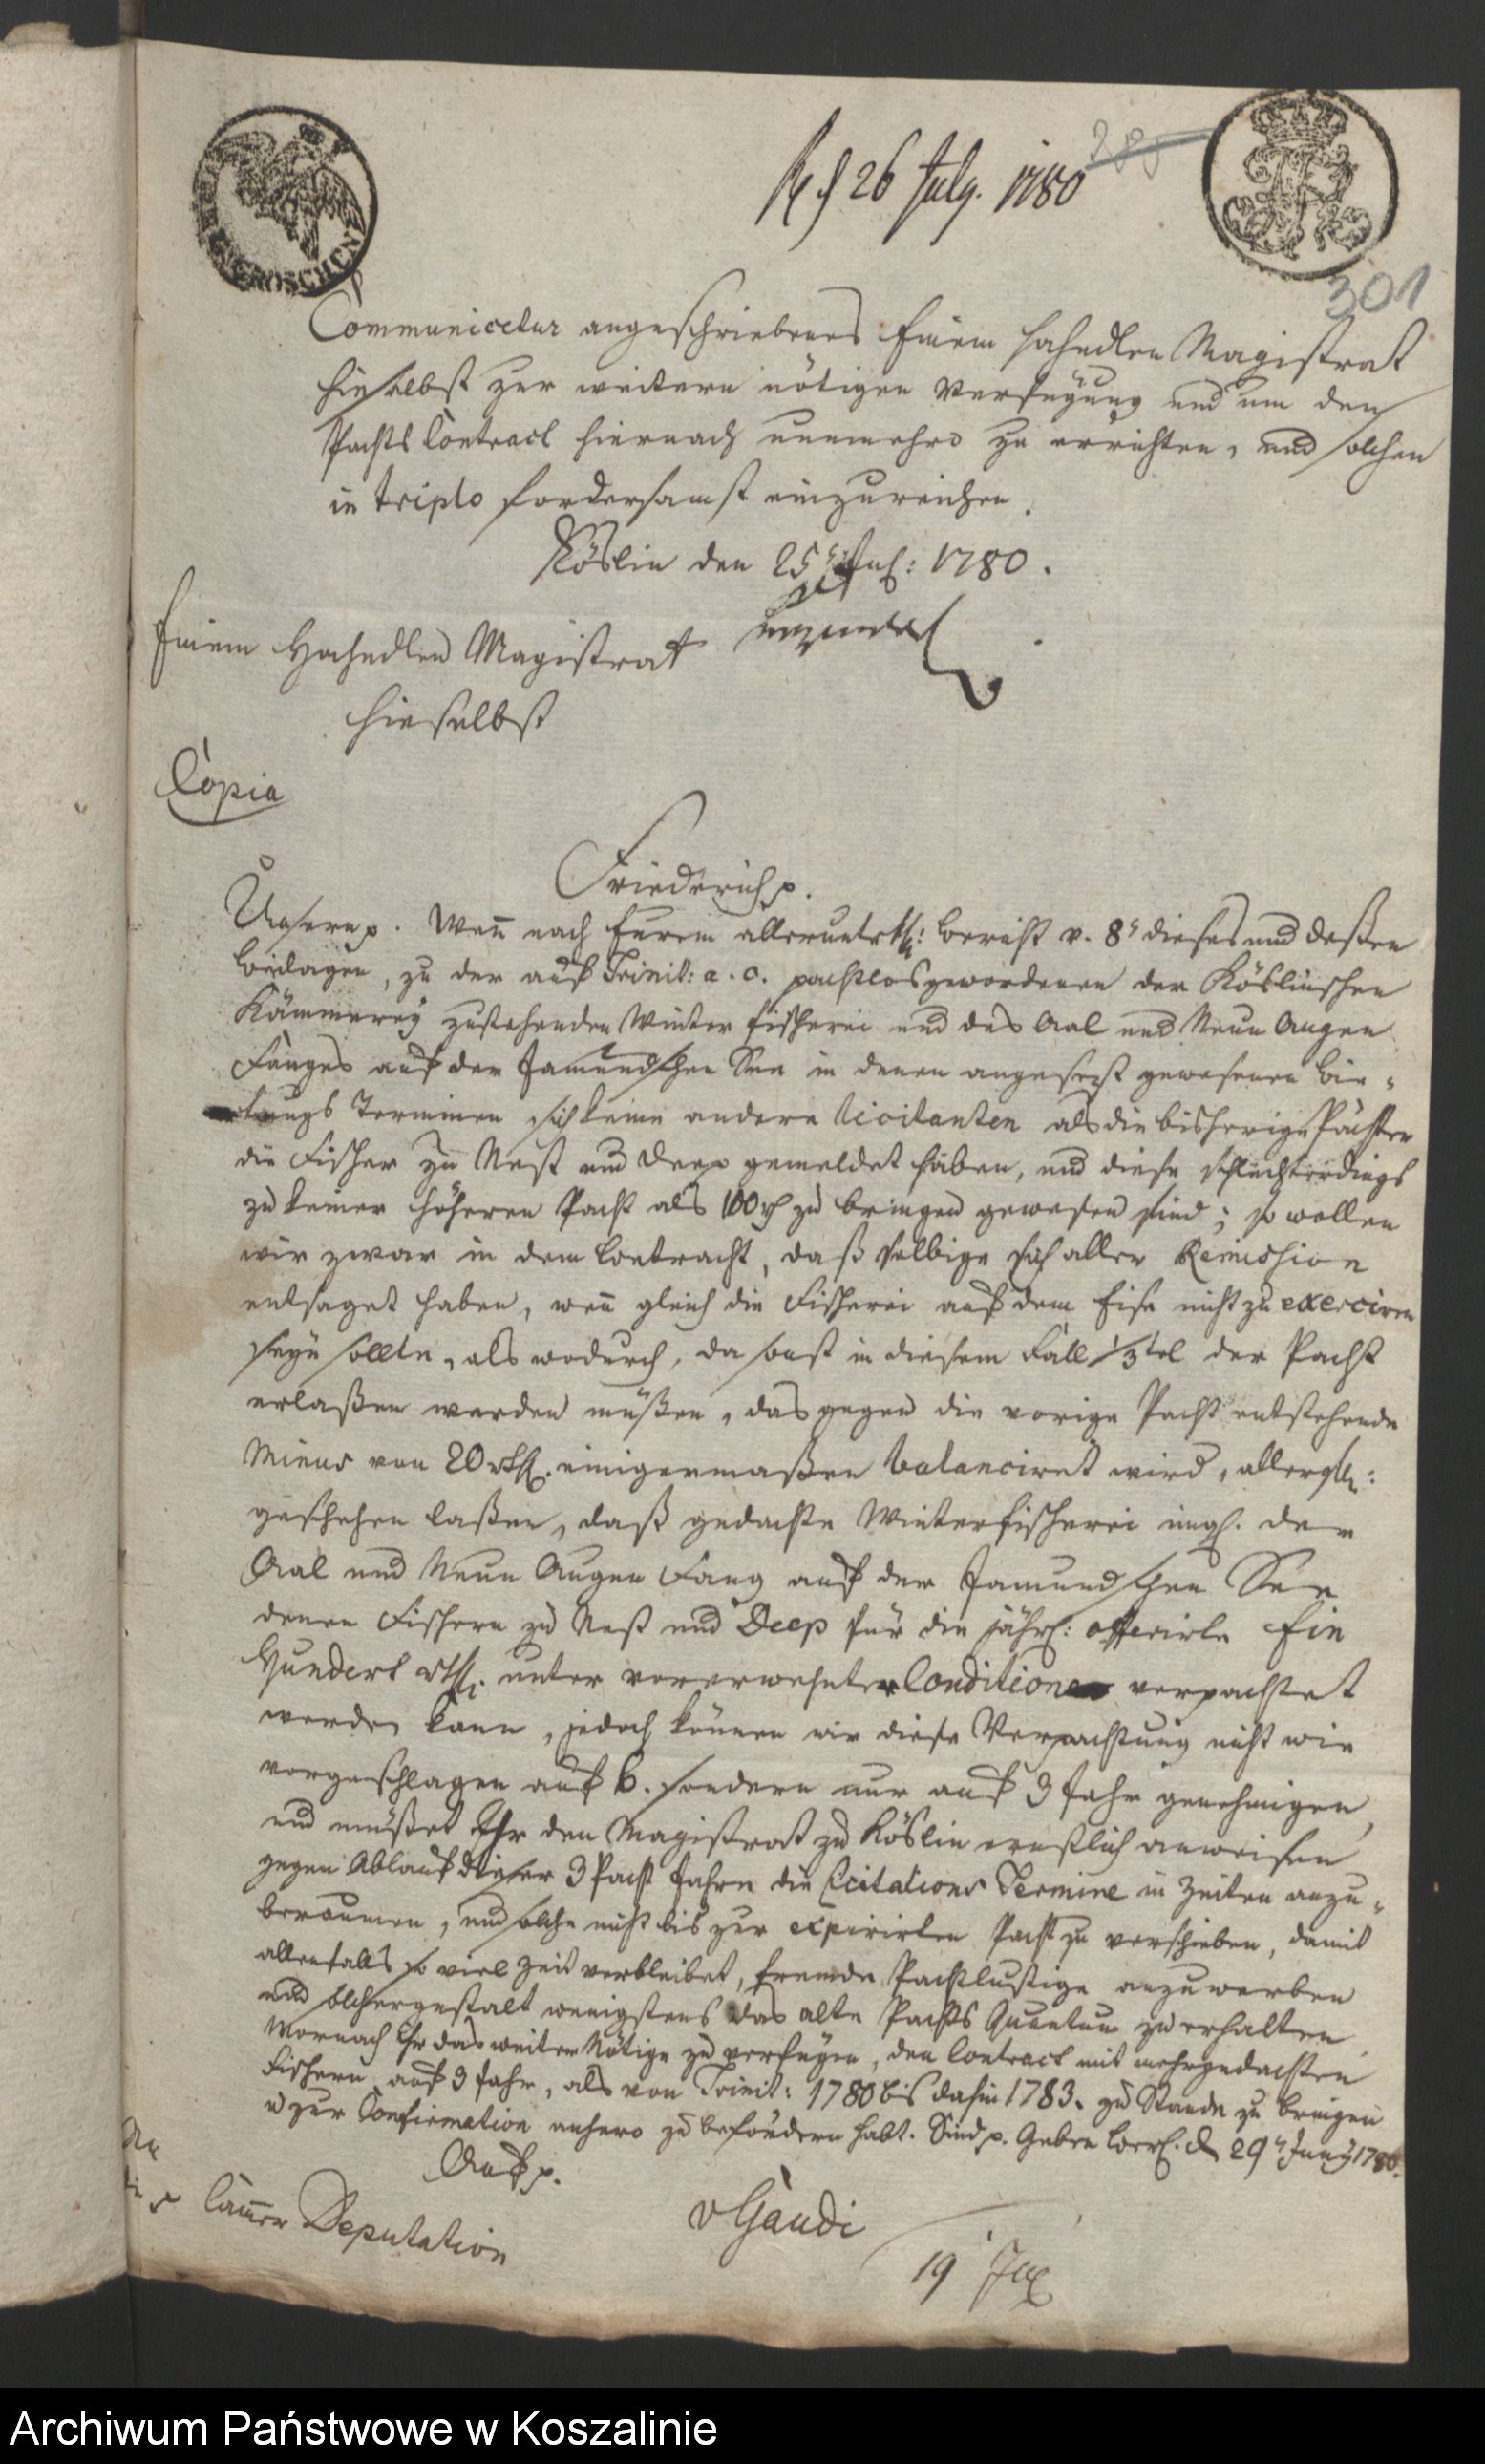 26 July. 1780
301
Communicetur angeschriebenes Einem HochEdlen Magistrat
hieselbst zur weitern nötigen Verfügung und um den
Pachts Contract hiernach nunmehro zu errichten, und solchen
in triplo fordersamst einzureichen.
Köslin den 25t Jul: 1780.
Einem HochEdlen Magistrat
hieselbst
Copia
Friederich p.
Unsern p. Wenn nach Eurem Bericht v. 8t dieses und deßen
Beilagen, zu der auf Trinit: a. c. pachtlosgewordenen der Köslinschen
Kämmerey zustehenden Winter Fischerei und des Aal und Neun Augen
Fanges auf der Jamundschen See in denen angesezt gewesenen Bie-
tungs Terminen sich keine andere Licitanten als die bisherige Pächter
die Fischer zu Nest und Deep gemeldet haben, und diese schlechterdings
zu keiner höheren Pacht als 100 zu bringen gewesen sind; so wollen
wir zwar in dem Betracht, daß selbige sich aller Remission
entsaget haben, wenn gleich die Fischerei auf dem Eise nicht zu exerciren
seyn sollte, als wodurch, da sonst in diesem Fall 1/3tel der Pacht
erlaßen werden müßen, das gegen die vorige Pacht entstehende
Minus von 20 rthl. einigermaßen balanciret wird,
geschehen laßen, daß gedachte Winterfischerei imgl. der
Aal und Neun Augen Fang auf der Jamundschen See
denen Fischern zu Nest und Deep für die jährl: offerirte Ein
Hundert rthl. unter vorerwehnter Condition verpachtet
werden kann, jedoch können wir diese Verpachtung nicht wie
vorgeschlagen auf 6. sondern nur auf 3 Jahr genehmigen,
und müßet Ihr den Magistrat zu Köslin ernstlich anweisen
gegen Ablauf dieser 3 Pacht Jahre die Licitations Termine in Zeiten anzu-
beraumen, und solche nicht bis zur expirirten Pacht zu verschieben, damit
allenfalls so viel Zeit verbleibet, fremde Pachtlustige anzuwerben
und solchergestalt wenigstens das alte Pachts Quantum zu erhalten
Wornach Ihr das weitere Nötige zu verfügen, den Contract mit mehrgedachten
Fischern auf 3 Jahr, als von Trinit: 1780 bis dahin 1783. zu Stande zu bringen
u zur Confirmation anhero zu befördern habt. Sind p. Geben Berl. d 29t Juny 1780.
Auf p.
v Gaudi
An
die Cammer Deputation
19 Jul
Archiwum Państwowe w Koszalinie